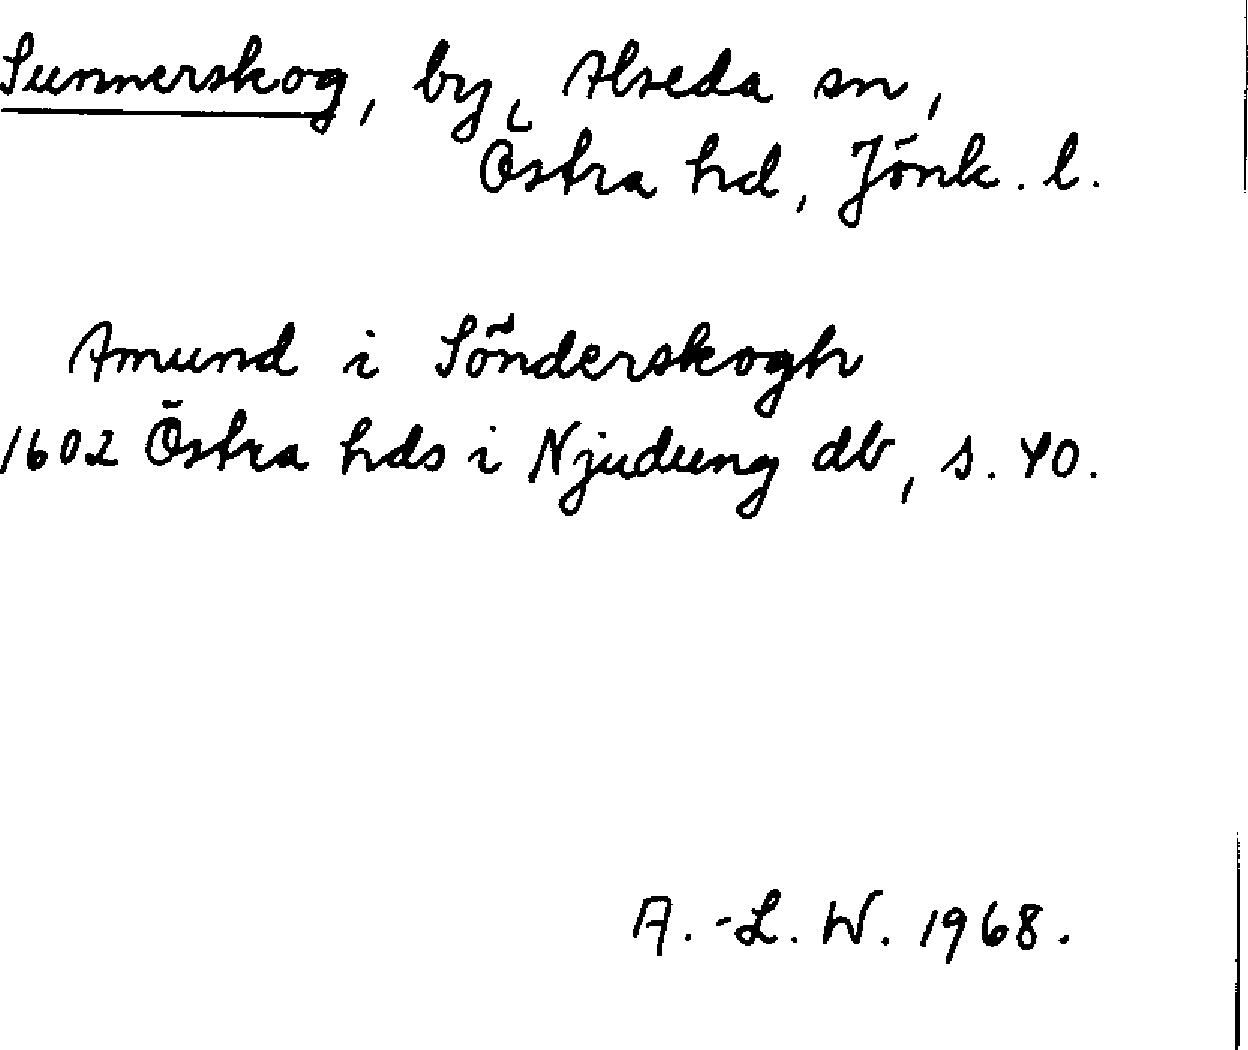 Sunnerskog, by, Alseda sn,
Östra hd, Jönk. l.
Amund i Sönderskogh
1602 Östra hds i Njudung db, s. 40.
A.-L. W. 1968.